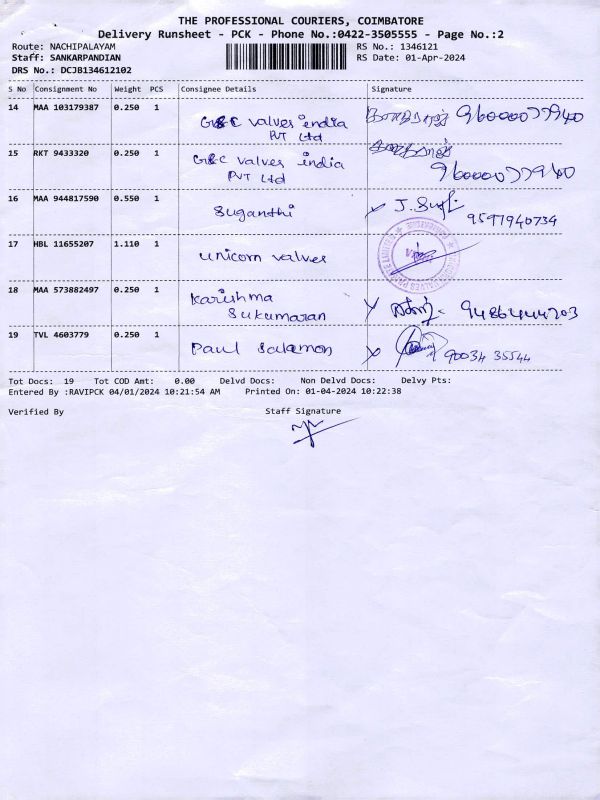 THE PROFESSIONAL COURIERS, COIMBATORE
Delivery Runsheet - PCK - Phone No.:0422-3505555 - Page No.:2
Route: NACHIPALAYAM RS No.: 1346121
Staff: SANKARPANDIAN RS Date: 01-Apr-2024
DRS No.: DCJB134612102
S No Consignment No Weight PCS Consignee Details Signature
14 MAA 103179387 0.250 1 G&C valves india 9600007940
PVT Ltd
15 RKT 9433320 0.250 1 G&C valves india
PVT Ltd 9600007940
16 MAA 944817590 0.550 1 Suganthi J. Sugi
9597940734
17 HBL 11655207 1.110 1 unicorn valves
18 MAA 573882497 0.250 1 Karishma
Sukumaran 9486444203
19 TVL 4603779 0.250 1 Paul Salamon 90034 35544
Tot Docs: 19 Tot COD Amt: 0.00 Delvd Docs: Non Delvd Docs: Delvy Pts:
Entered By :RAVIPCK 04/01/2024 10:21:54 AM Printed On: 01-04-2024 10:22:38
Verified By Staff Signature